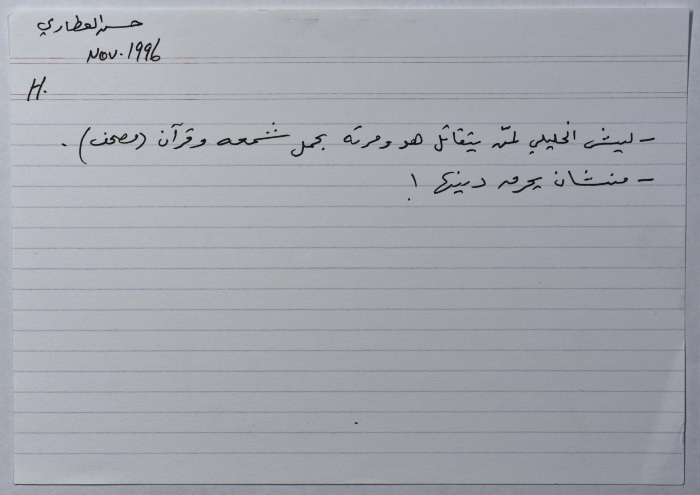 حسن العطاري
Nov. 1996
H.
- ليش الخليلي لمّن يتقاتل هو ومرته بحمل شمعه وقرآن (مصحف).
- منشان يحرق دينها !